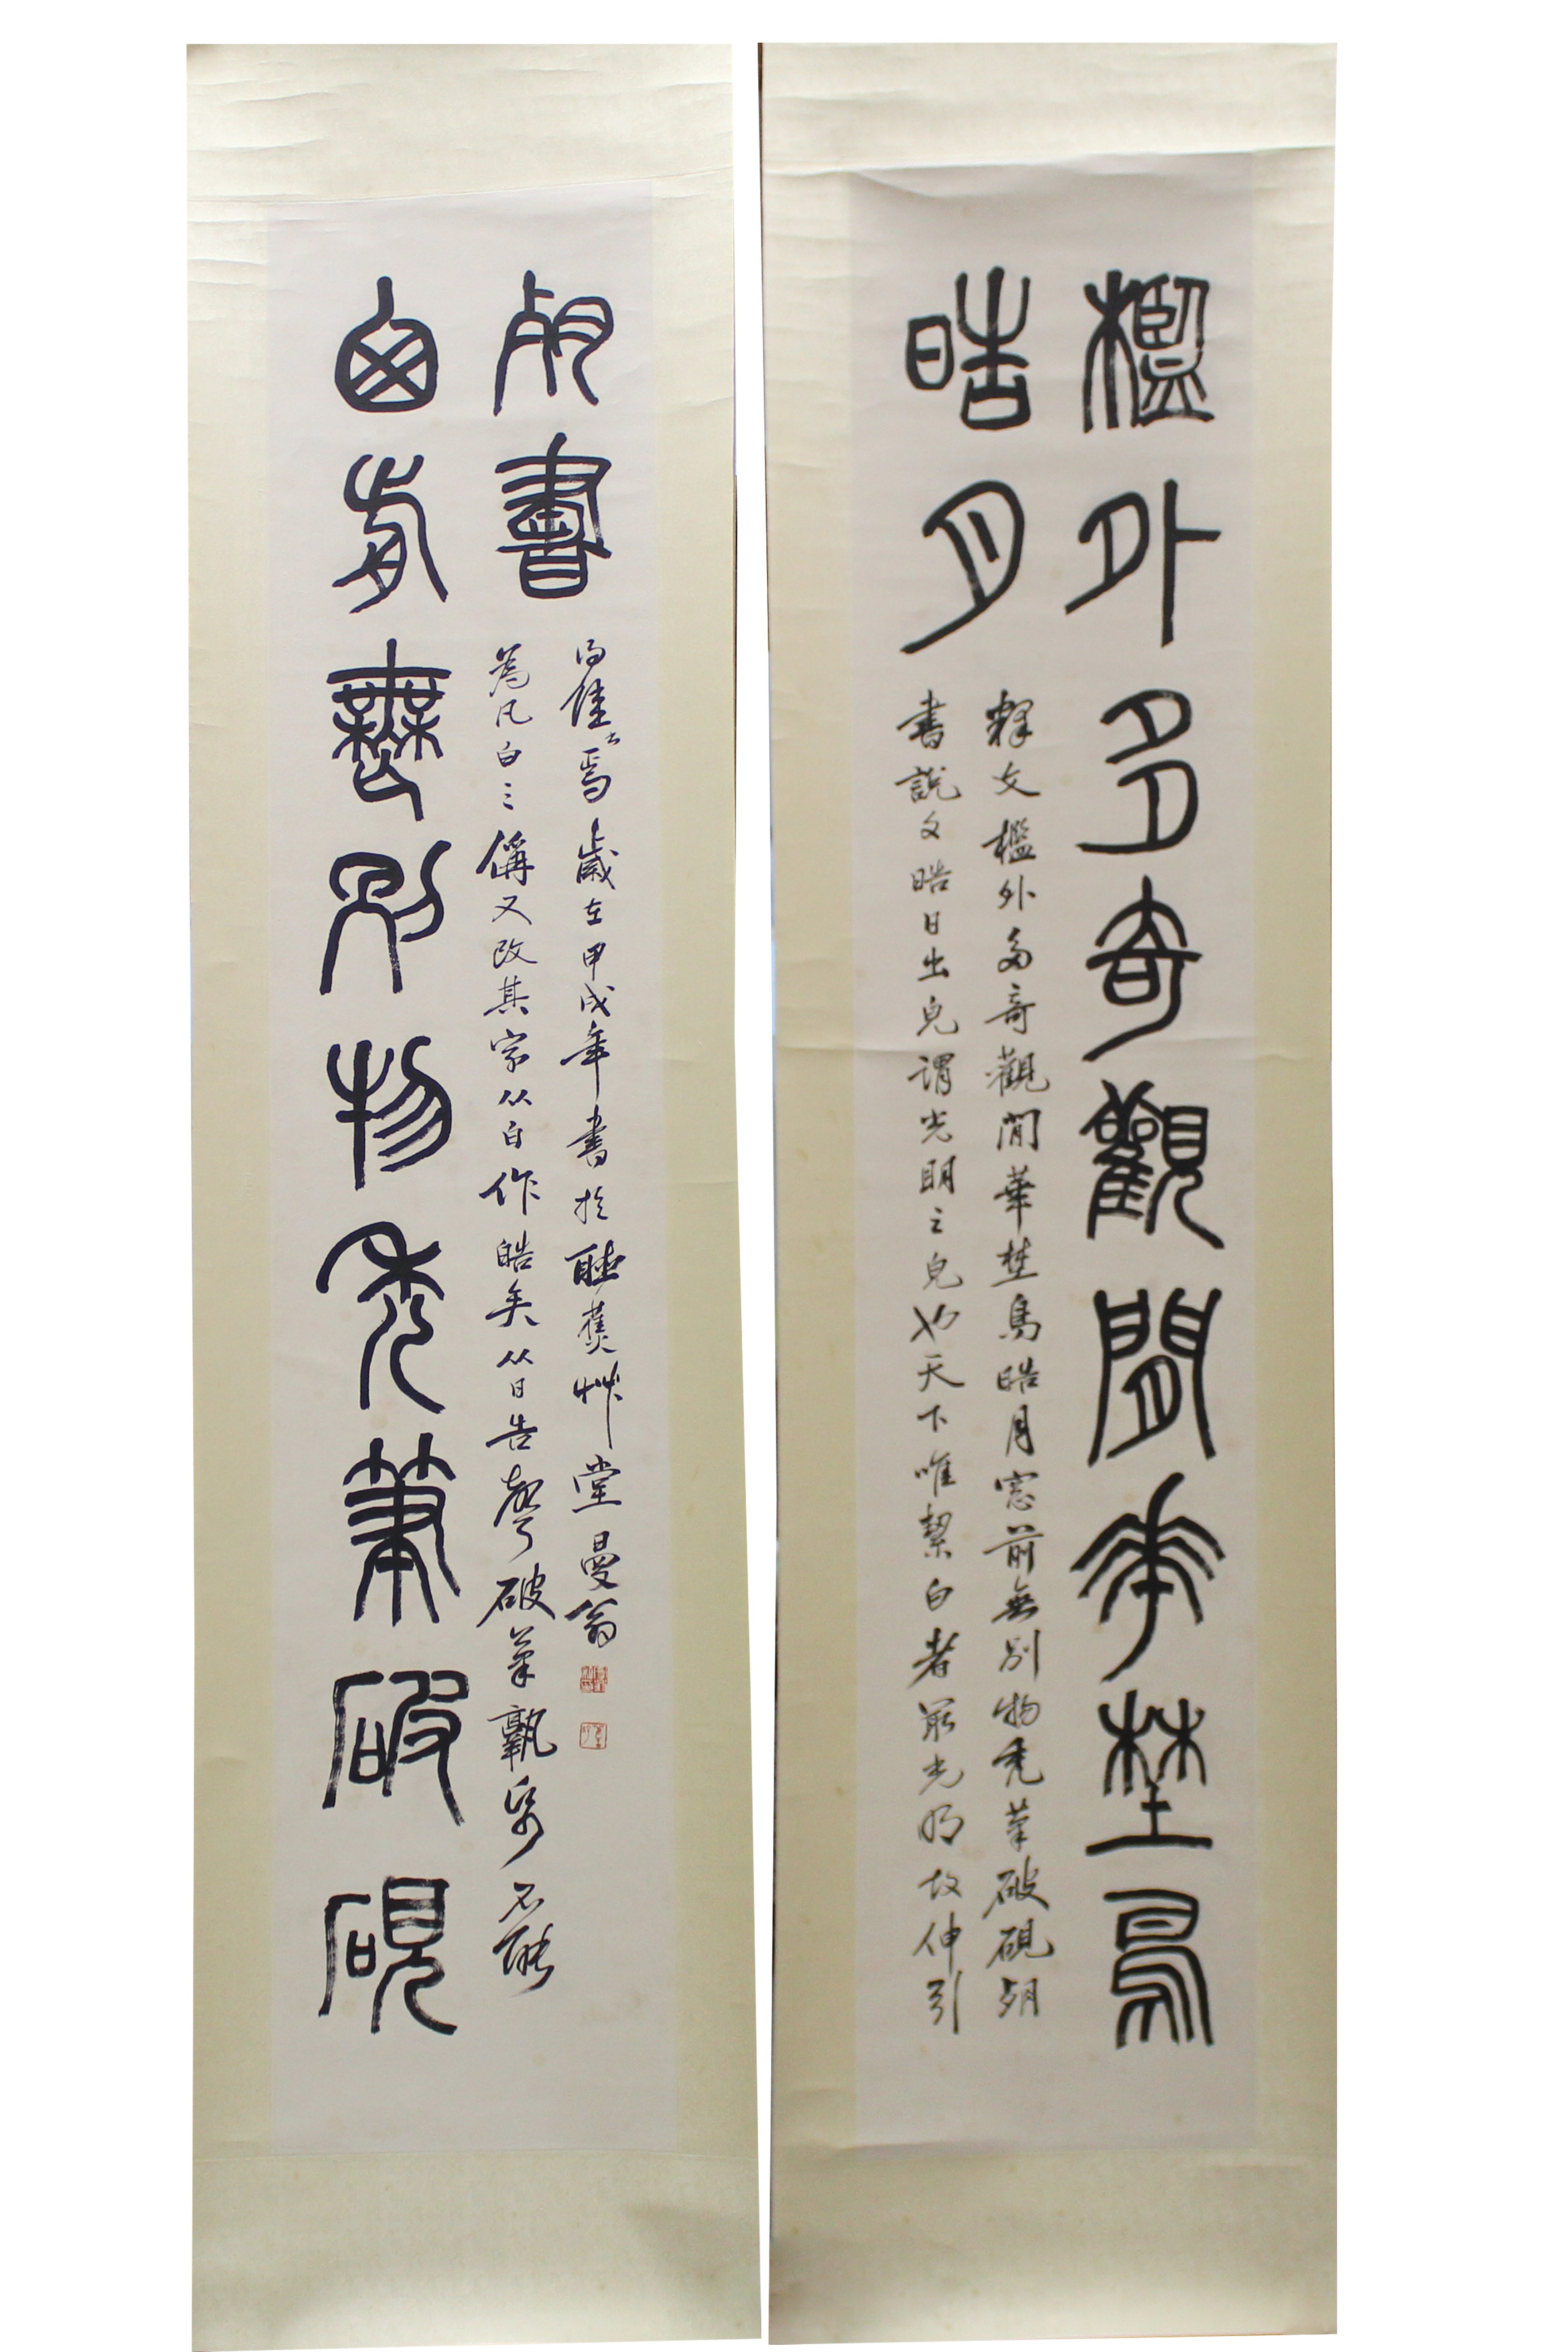 檻外多奇觀閒華埜鳥
晧月
釋文檻外多奇觀閒華埜鳥晧月窓前無別物秃筆破硯
書說文晧日出皃謂光明之皃也天下唯絜白者最光明故伸引
囱前無別物秃筆破硯
書
為凡白之偁又改其字从白作皓矣从日告聲破筆孰帋不能
得佳焉歲在甲戌年書於聽蕉艸堂曼翁